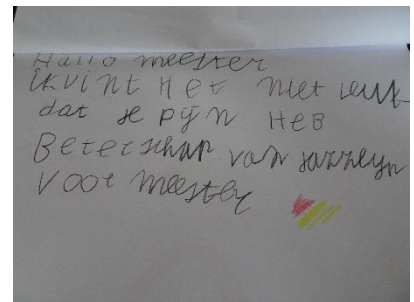 Hallo meester
ik vint Het niet leuk
dat je pijn HEB
Beterschap van
voor meester